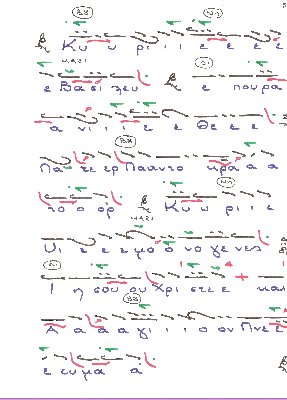 Κυ υ ρι ι ι ε ε ε ε
ε Βασι λευ ε πουρα
α νι ι ι ε ε Θε ε ε
Πα τε ερ Παντο κρα α α
το ο ορ Κυ υ ρι ι ε
Υι ε ε ε μο ο νο γε νες
Ι η σου ου Χρι στε ε και
Α α α α γι ι ι ο ον Πνε ε
ε ευ μα α